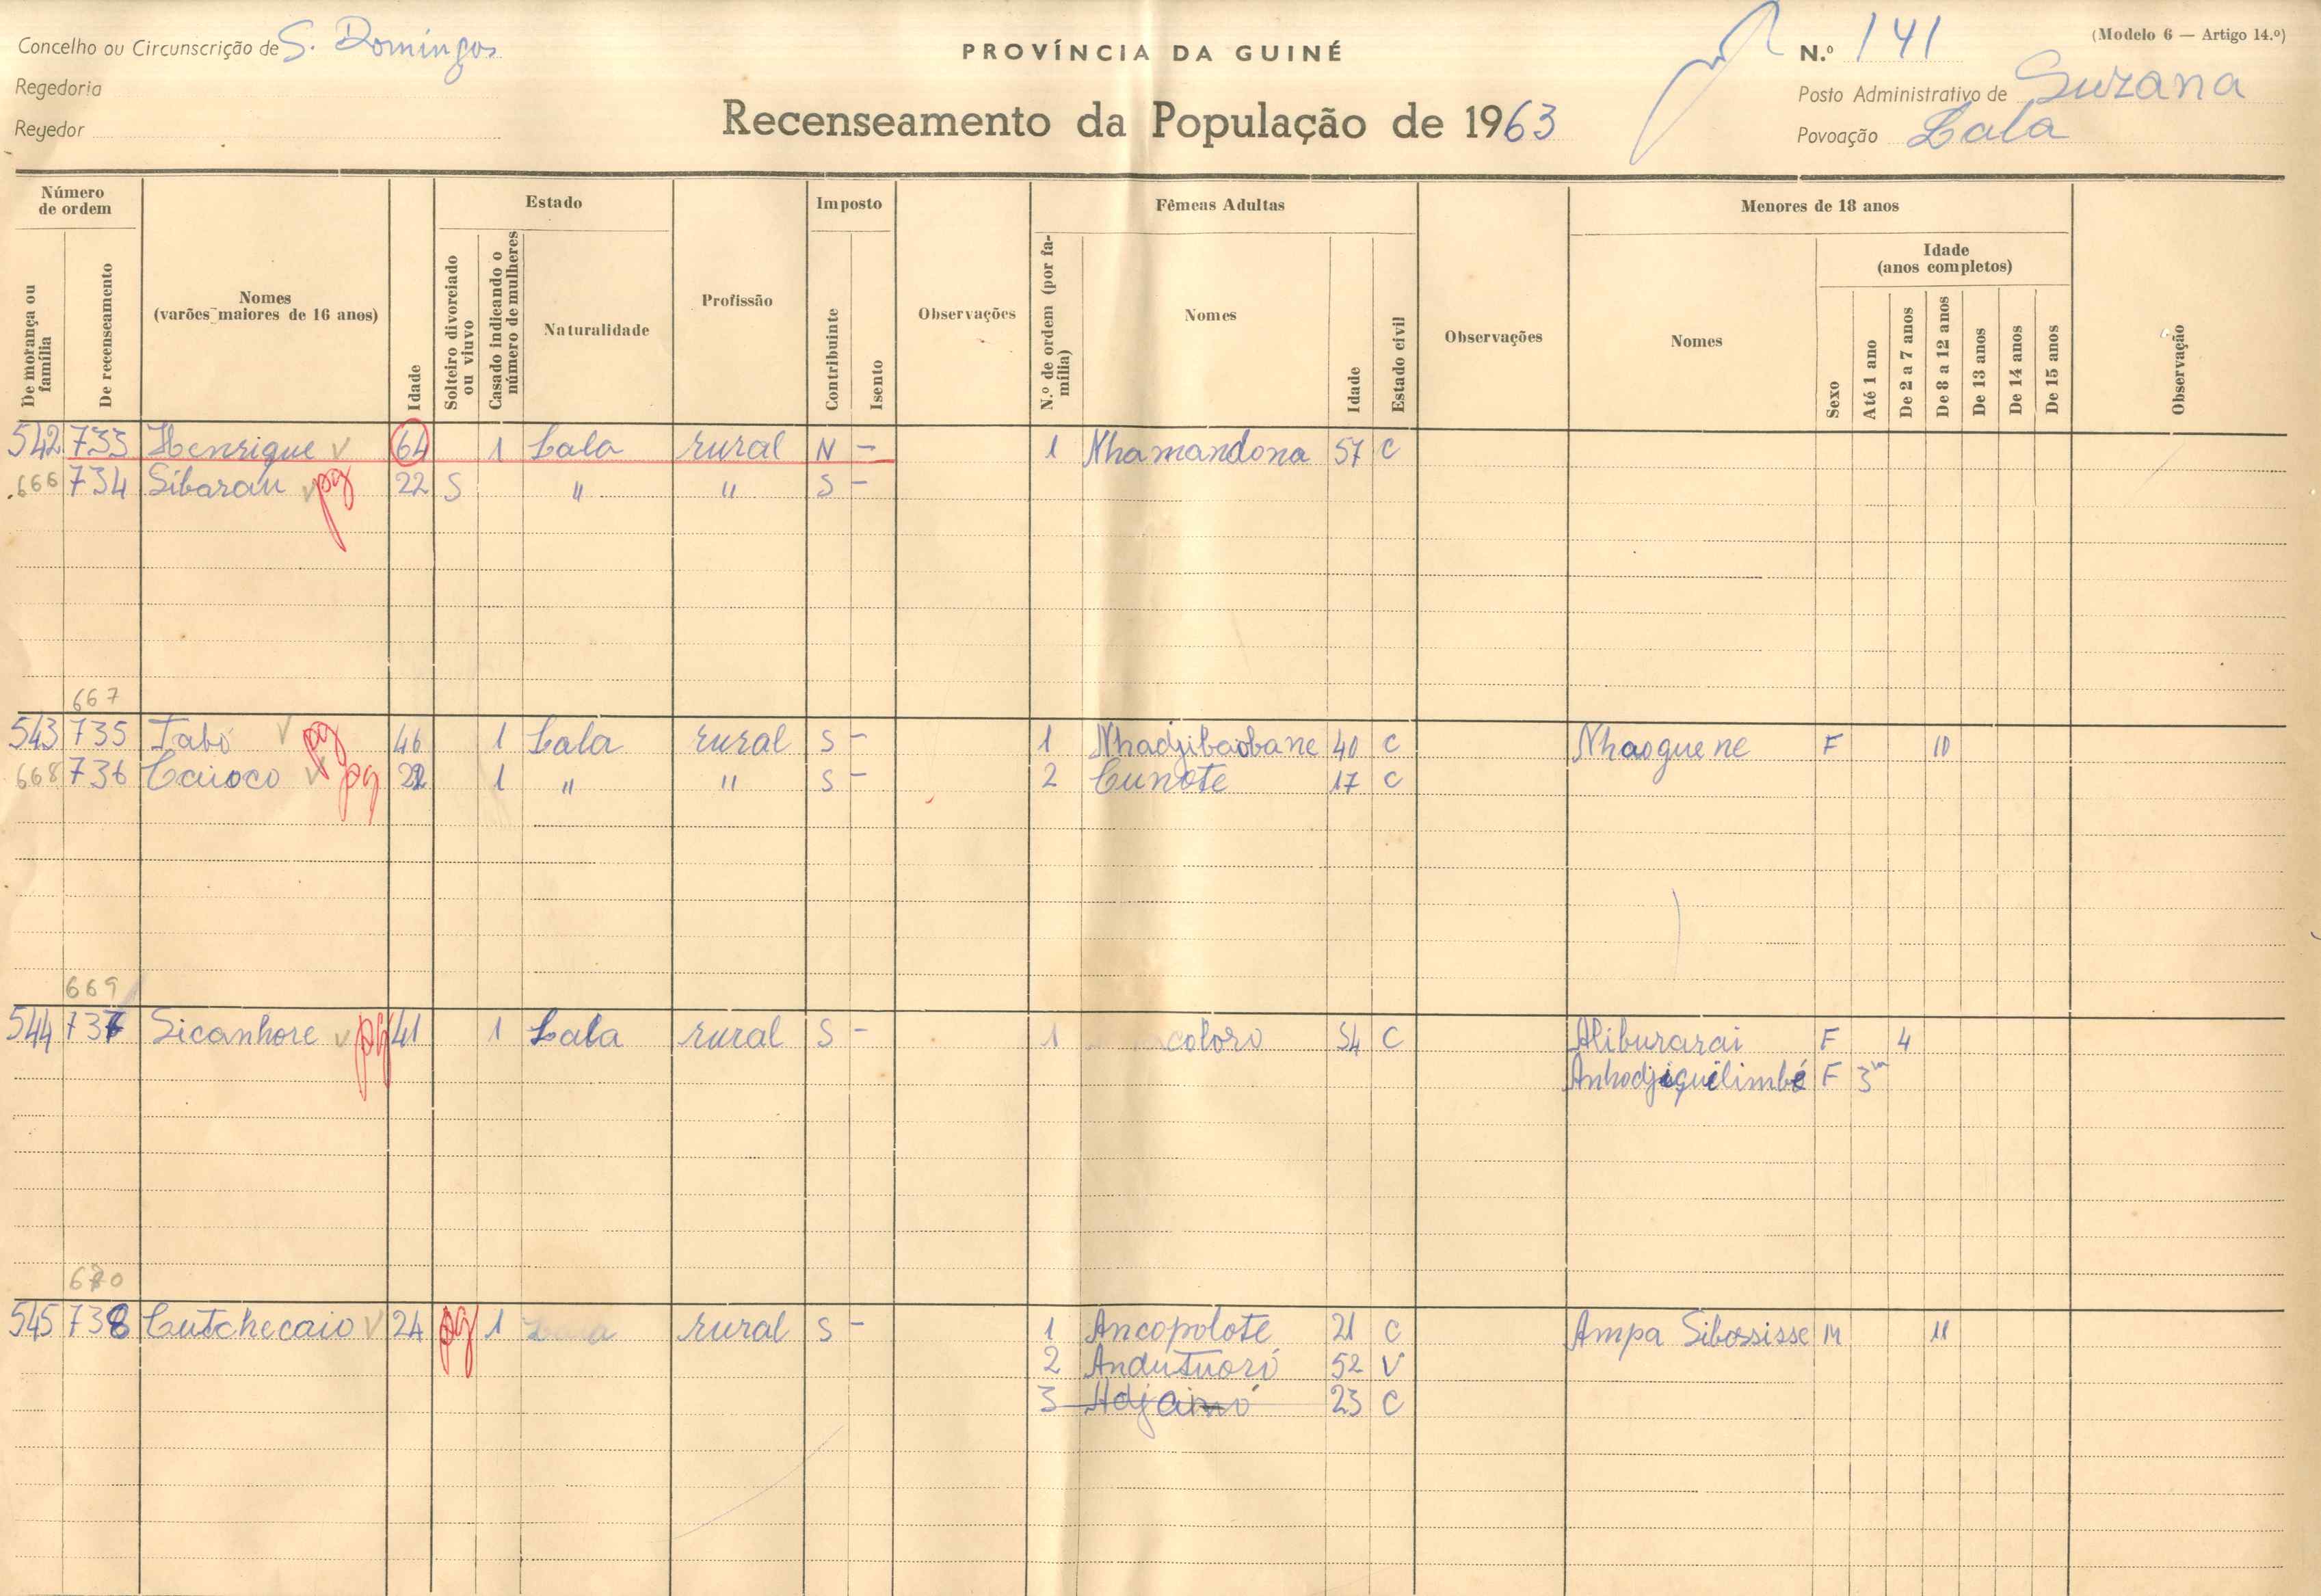 Concelho ou Circunscrição de S. Domingos
PROVÍNCIA DA GUINÉ
N.º 141
(Modelo 6 — Artigo 14.º)
Regedoria
Posto Administrativo de Suzana
Regedor
Recenseamento da População de 1963
Povoação Lala
Número de ordem
Estado
Imposto
Fêmeas Adultas
Menores de 18 anos
De morança ou família
De recenseamento
Nomes (varões maiores de 16 anos)
Idade
Solteiro divorciado ou viuvo
Casado indicando o número de mulheres
Naturalidade
Profissão
Contribuinte
Isento
Observações
N.º de ordem (por família)
Nomes
Idade
Estado civil
Observações
Nomes
Sexo
Idade (anos completos)
Até 1 ano
De 2 a 7 anos
De 8 a 12 anos
De 13 anos
De 14 anos
De 15 anos
Observação
542 733 Henrique v 64 1 Lala rural N — 1 Nhamandona 57 C
666 734 Sibarau v pg 22 S " " S —
667
543 735 Tabó v pg 46 1 Lala rural S — 1 Nhadjibaobane 40 C Nhaoguene F 10
668 736 Caioco v pg 22 1 " " S — 2 Cunote 17 C
669
544 737 Sicanhore v pg 41 1 Lala rural S — 1 coloró 34 C Aliburarai F 4
Anhodjiquilimbé F 3m
670
545 738 Cutchecaio v 24 pg 1 Lala rural S — 1 Ancopolote 21 C Ampa Sibossisse M 11
2 Andutuori 52 V
3 Adjaimó 23 C